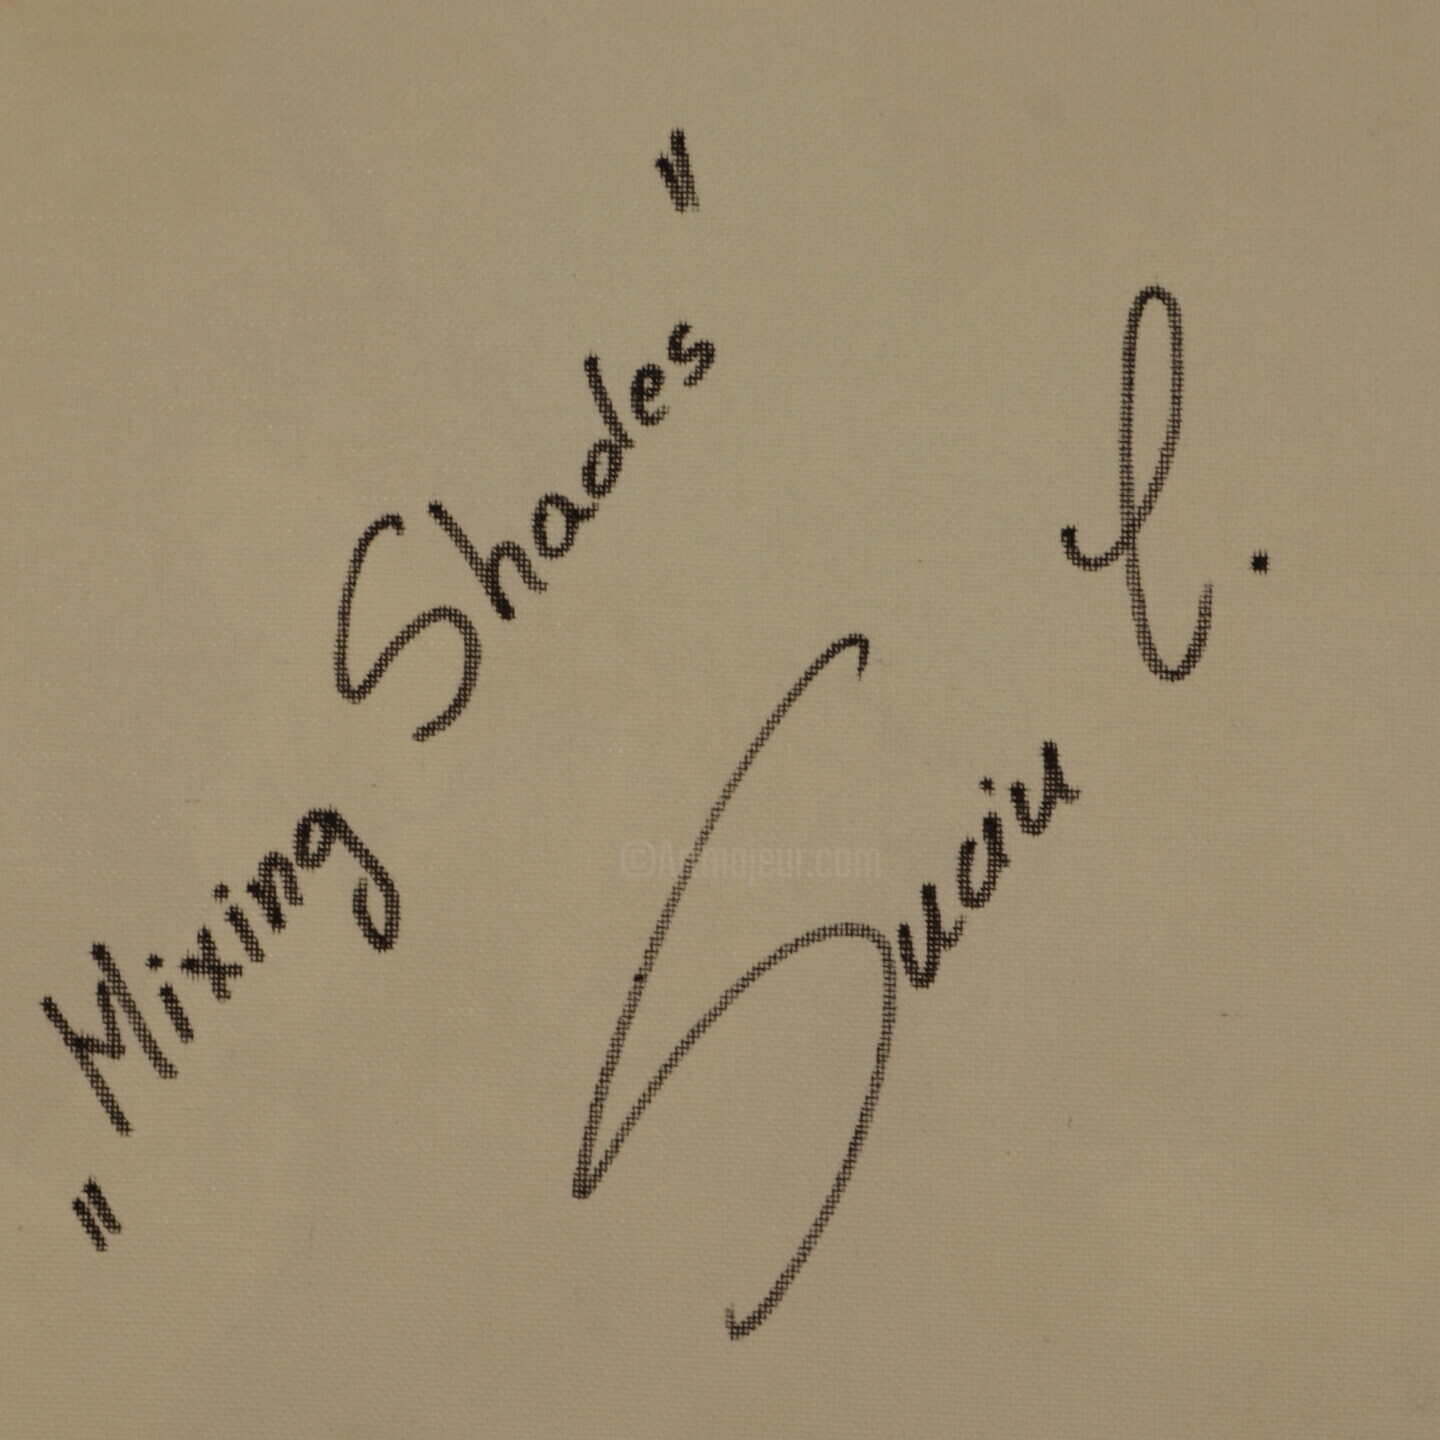 "Mixing Shades"
Suciu C.
©Artmajeur.com